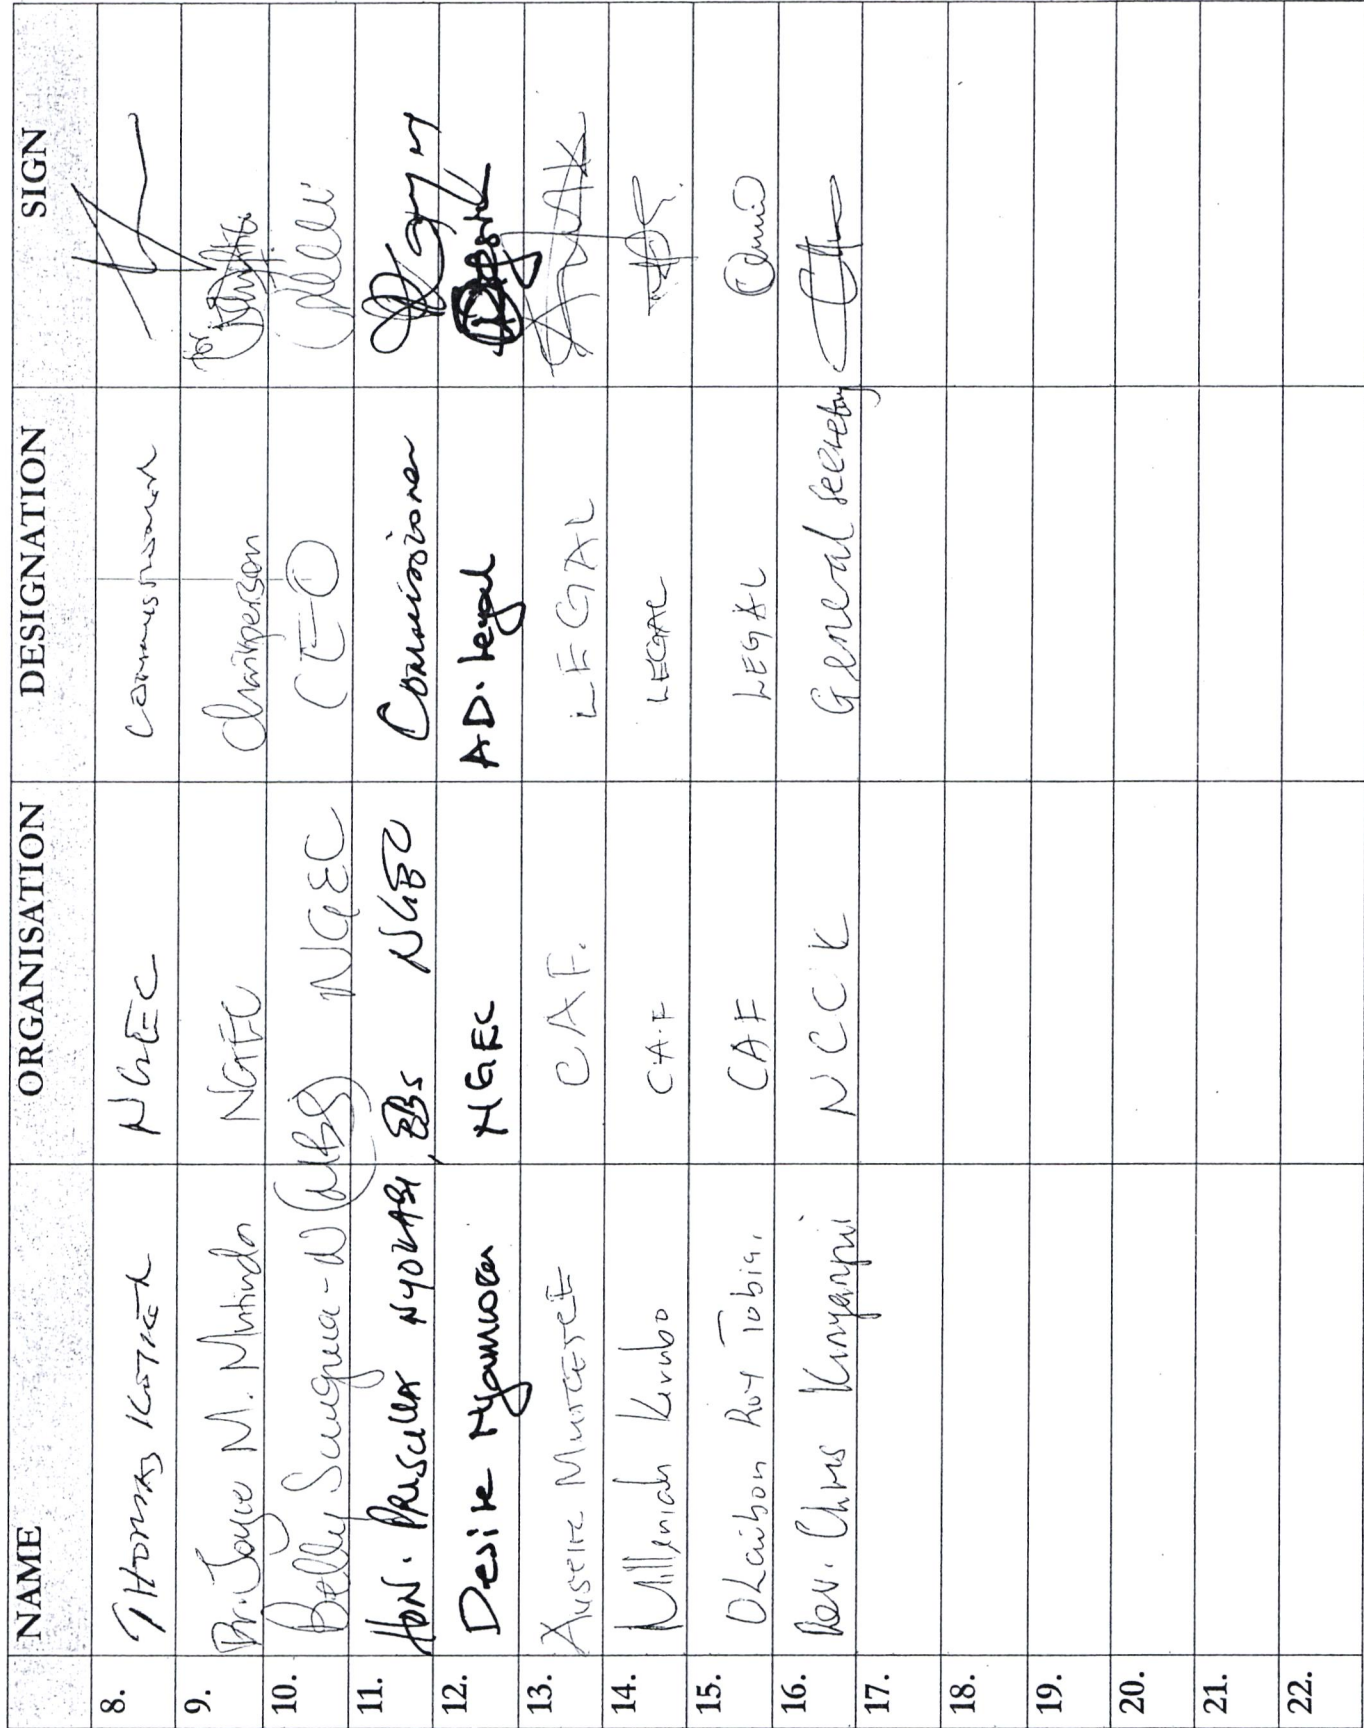 NAME ORGANISATION DESIGNATION SIGN
8. THOMAS KOTHER NGEC Commissioner
9. Dr. Joyce M. Mutinda NGEC Chairperson for
10. Betty Sungura-N (MBS) NGEC CEO
11. HON. PRISCILLA NYOKABI, EBS NGEC Commissioner
12. Desire Nyamwea NGEC AD. Legal
13. CAF. LEGAL
14. Milleniah Kerubo CAF LEGAL
15. OLaibon Roy Tobia. CAF LEGAL
16. Rev. Chris Kinyanjui NCCK General Secretary
17.
18.
19.
20.
21.
22.